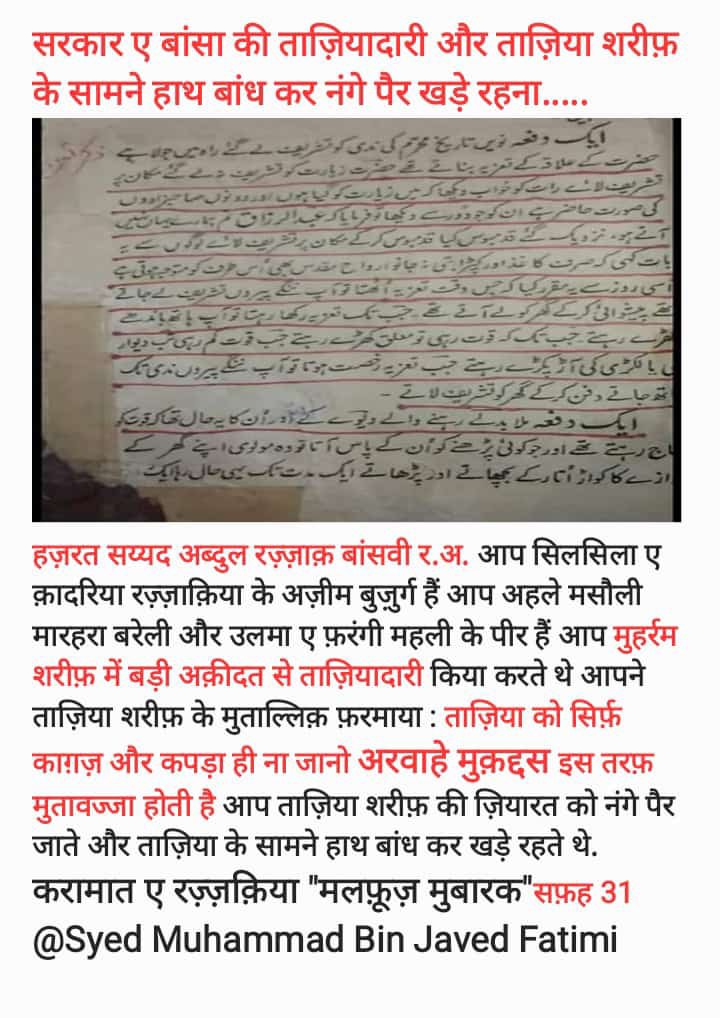 सरकार ए बांसा की ताज़ियादारी और ताज़िया शरीफ़
के सामने हाथ बांध कर नंगे पैर खड़े रहना.....
ایک دفعہ نویں تاریخ محرم کی ندی کو تشریف لے گئے راہ میں جولاہے
حضرت کے علاقہ کے تعزیہ بناتے تھے حضرت زیارت کو تشریف نہ لے گئے مکان پر
تشریف لائے رات کو خواب دیکھا کہ میں زیارت کو گیا ہوں اور دونوں صاحبزادوں
کی صورت حاضر ہے ان کو جو دور سے دیکھا تو فرمایا کہ عبدالرزاق تم ہمارے یہاں نہیں
آتے ہو، نزدیک گئے قدمبوس کیا قدمبوس کرکے مکان پر تشریف لائے لوگوں سے یہ
بات کہی کہ صرف کاغذ اور کپڑا ہی نہ جانو ارواح مقدس بھی اس طرف کو متوجہ ہوتی ہے
اسی روز سے یہ مقرر کیا کہ جس وقت تعزیہ اُٹھتا تو آپ ننگے پیروں تشریف لے جاتے
تھے پیشوائی کرکے گھر کو لے آتے تھے جب تک تعزیہ رکھا رہتا تو آپ ہاتھ باندھے
کھڑے رہتے جب تک کہ قوت رہی تو معلق کھڑے رہتے جب قوت کم رہی تب دیوار
یا لکڑی کی آڑ پکڑے رہتے جب تعزیہ رخصت ہوتا تو آپ ننگے پیروں ندی تک
تھ جاتے دفن کرکے گھر کو تشریف لاتے -
ایک دفعہ ملا رہنے والے دیوے کے اور اُن کا یہ حال تھا کہ قوت کو
اج رہتے تھے اور جو کوئی پڑھنے کو اُن کے پاس آتا تو وہ مولوی اپنے گھر کے
ازے کا کواڑ اُتار کے بچھاتے اور پڑھاتے ایک مدت تک یہی حال رہا ایک
हज़रत सय्यद अब्दुल रज़्ज़ाक़ बांसवी र.अ. आप सिलसिला ए
क़ादरिया रज़्ज़ाक़िया के अज़ीम बुज़ुर्ग हैं आप अहले मसौली
मारहरा बरेली और उलमा ए फ़रंगी महली के पीर हैं आप मुहर्रम
शरीफ़ में बड़ी अक़ीदत से ताज़ियादारी किया करते थे आपने
ताज़िया शरीफ़ के मुताल्लिक़ फ़रमाया : ताज़िया को सिर्फ़
काग़ज़ और कपड़ा ही ना जानो अरवाहे मुक़द्दस इस तरफ़
मुतावज्जा होती है आप ताज़िया शरीफ़ की ज़ियारत को नंगे पैर
जाते और ताज़िया के सामने हाथ बांध कर खड़े रहते थे.
करामात ए रज़्ज़क़िया "मलफ़ूज़ मुबारक"सफ़ह 31
@Syed Muhammad Bin Javed Fatimi